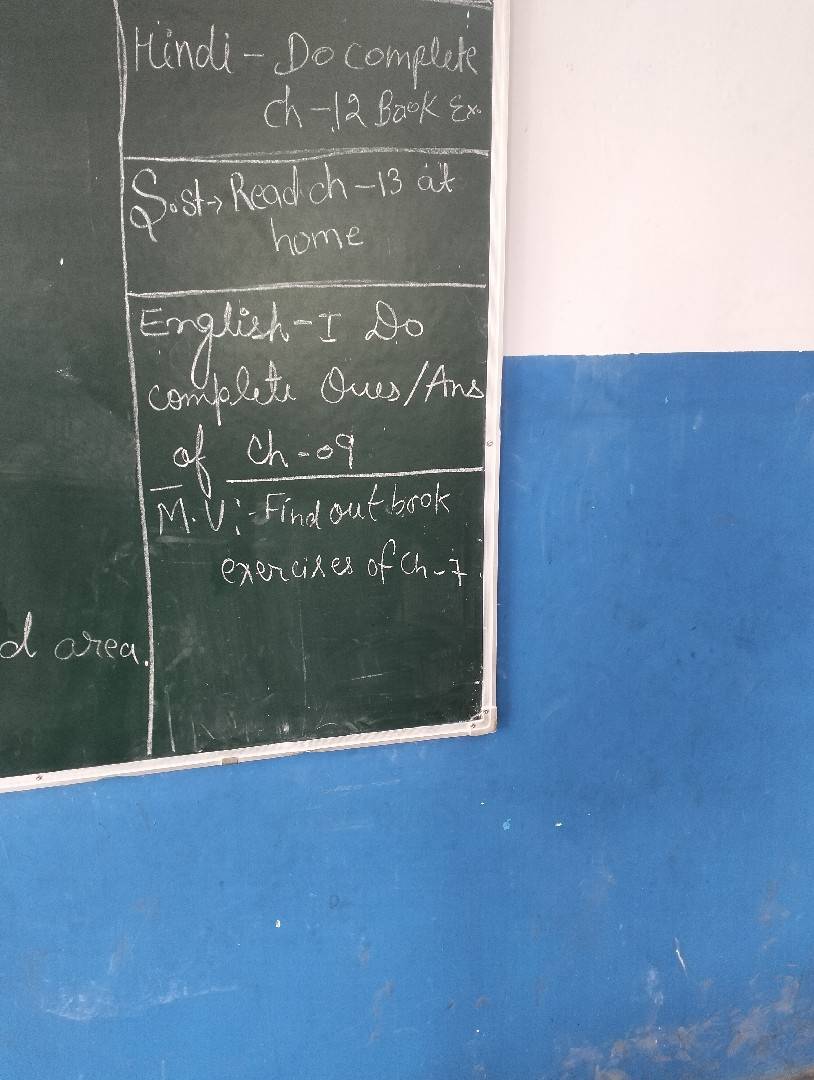 Hindi - Do complete
ch-12 Book Ex.
S.st→ Read ch-13 at
home
English-I Do
complete Ques/Ans
of Ch-09
M.V:- Find out book
exercises of Ch-7.
d area.